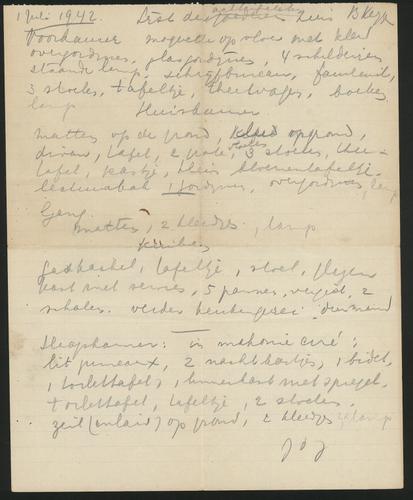 1 Juli 1942. Lijst der goederen huis
Voorkamer moquette op vloer met kleed
overgordijnen, glasgordijnen, 4 schilderijen
staande lamp, schrijfbureau, fauteuil,
3 stoelen, tafeltje, theewagen, boeken,
lamp
Huiskamer
matten op de grond, kleed op grond,
divan, tafel, 2 grote, 3 stoelen, thee-
tafel, kastje, bloementafeltje
gordijnen, overgordijnen, lamp
Gang
matten, 2 kleedjes, lamp
Keuken
Gashackel, tafeltje, stoel, vliegen
kast met servies, 5 pannen, vergiet, 2
schalen. verder keukengerei
Slaapkamer: in mahonie ciré:
lit jumeaux, 2 nachtkastjes, 1 bidet,
1 toilettafel, 1 linnenkast met spiegel,
toilettafel, tafeltje, 2 stoelen.
zeil (inlaid) op grond, 2 kleedjes lamp